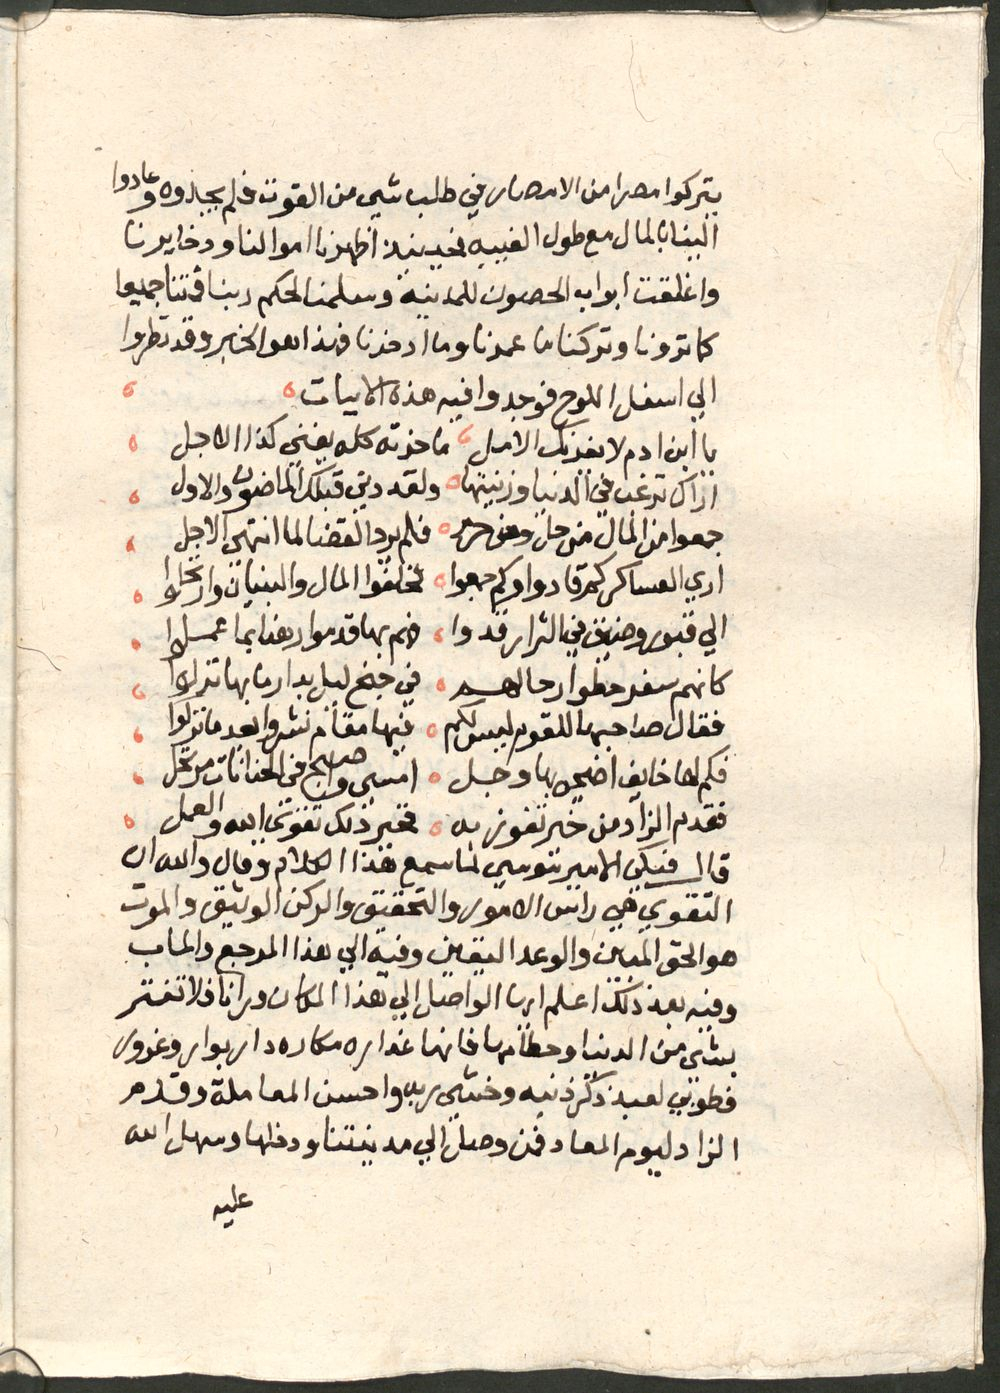 يتركوا مصرا من الامصار في طلب شي من القوت فلم يجدوه وعادوا
الينا بالمال مع طول الغيبه فحينيذ اظهرنا اموالنا وذخايرنا
واغلقت ابواب الحصون للمدينه وسلمنا لحكم ربنا فمتنا جميعا
كما ترونا وتركنا ما عمرنا وما ادخرنا فهذا هو الخبر وقد نظروا
الي اسفل اللوح فوجدوا فيه هذه الابيات
يا ابن ادم لا يغررك الامل ما حزته كله يفني كذا الاجل
اراك ترغب في الدنيا وزينتها ولقد قبلك الماضون والاول
جمعوا من المال من حل ومن حرم فلم يرد القضا لما انتهي الاجل
اري العساكر كم قادوا وكم جمعوا فخلفوا المال والبنيان وارتحلوا
الي قبور وضيق في الثرا رقدوا فهم بها قدموا رهنا بما عملوا
كانهم سفر حطوا رحالهم في جنح ليل بدار ما بها نزلوا
فقال صاحبها للقوم ليس لكم فيها مقام نشروا بعد ما نزلوا
فكم لها خايف اضحي بها وجل امسي واصبح في مرتحل
فقدم الزاد من خير تفوز به فخير ذلك تقوي الله والعمل
قال فبكي الامير موسي لما سمع هذا الكلام وقال والله ان
التقوي هي راس الامور والتحقيق والركن الوثيق والموت
هو الحق المبين والوعد اليقين وفيه الي هذا المرجع والماب
وفيه بعد ذلك اعلم ايها الواصل الي هذا المكان ورانا فلا تغتر
بشي من الدنيا وحطامها فانها غداره مكاره دار بوار وغرور
فطوبي لعبد ذكر ذنبه وخشي ربه واحسن المعاملة وقدم
الزاد ليوم المعاد فمن وصل الي مدينتنا ودخلها وسهل الله
عليه